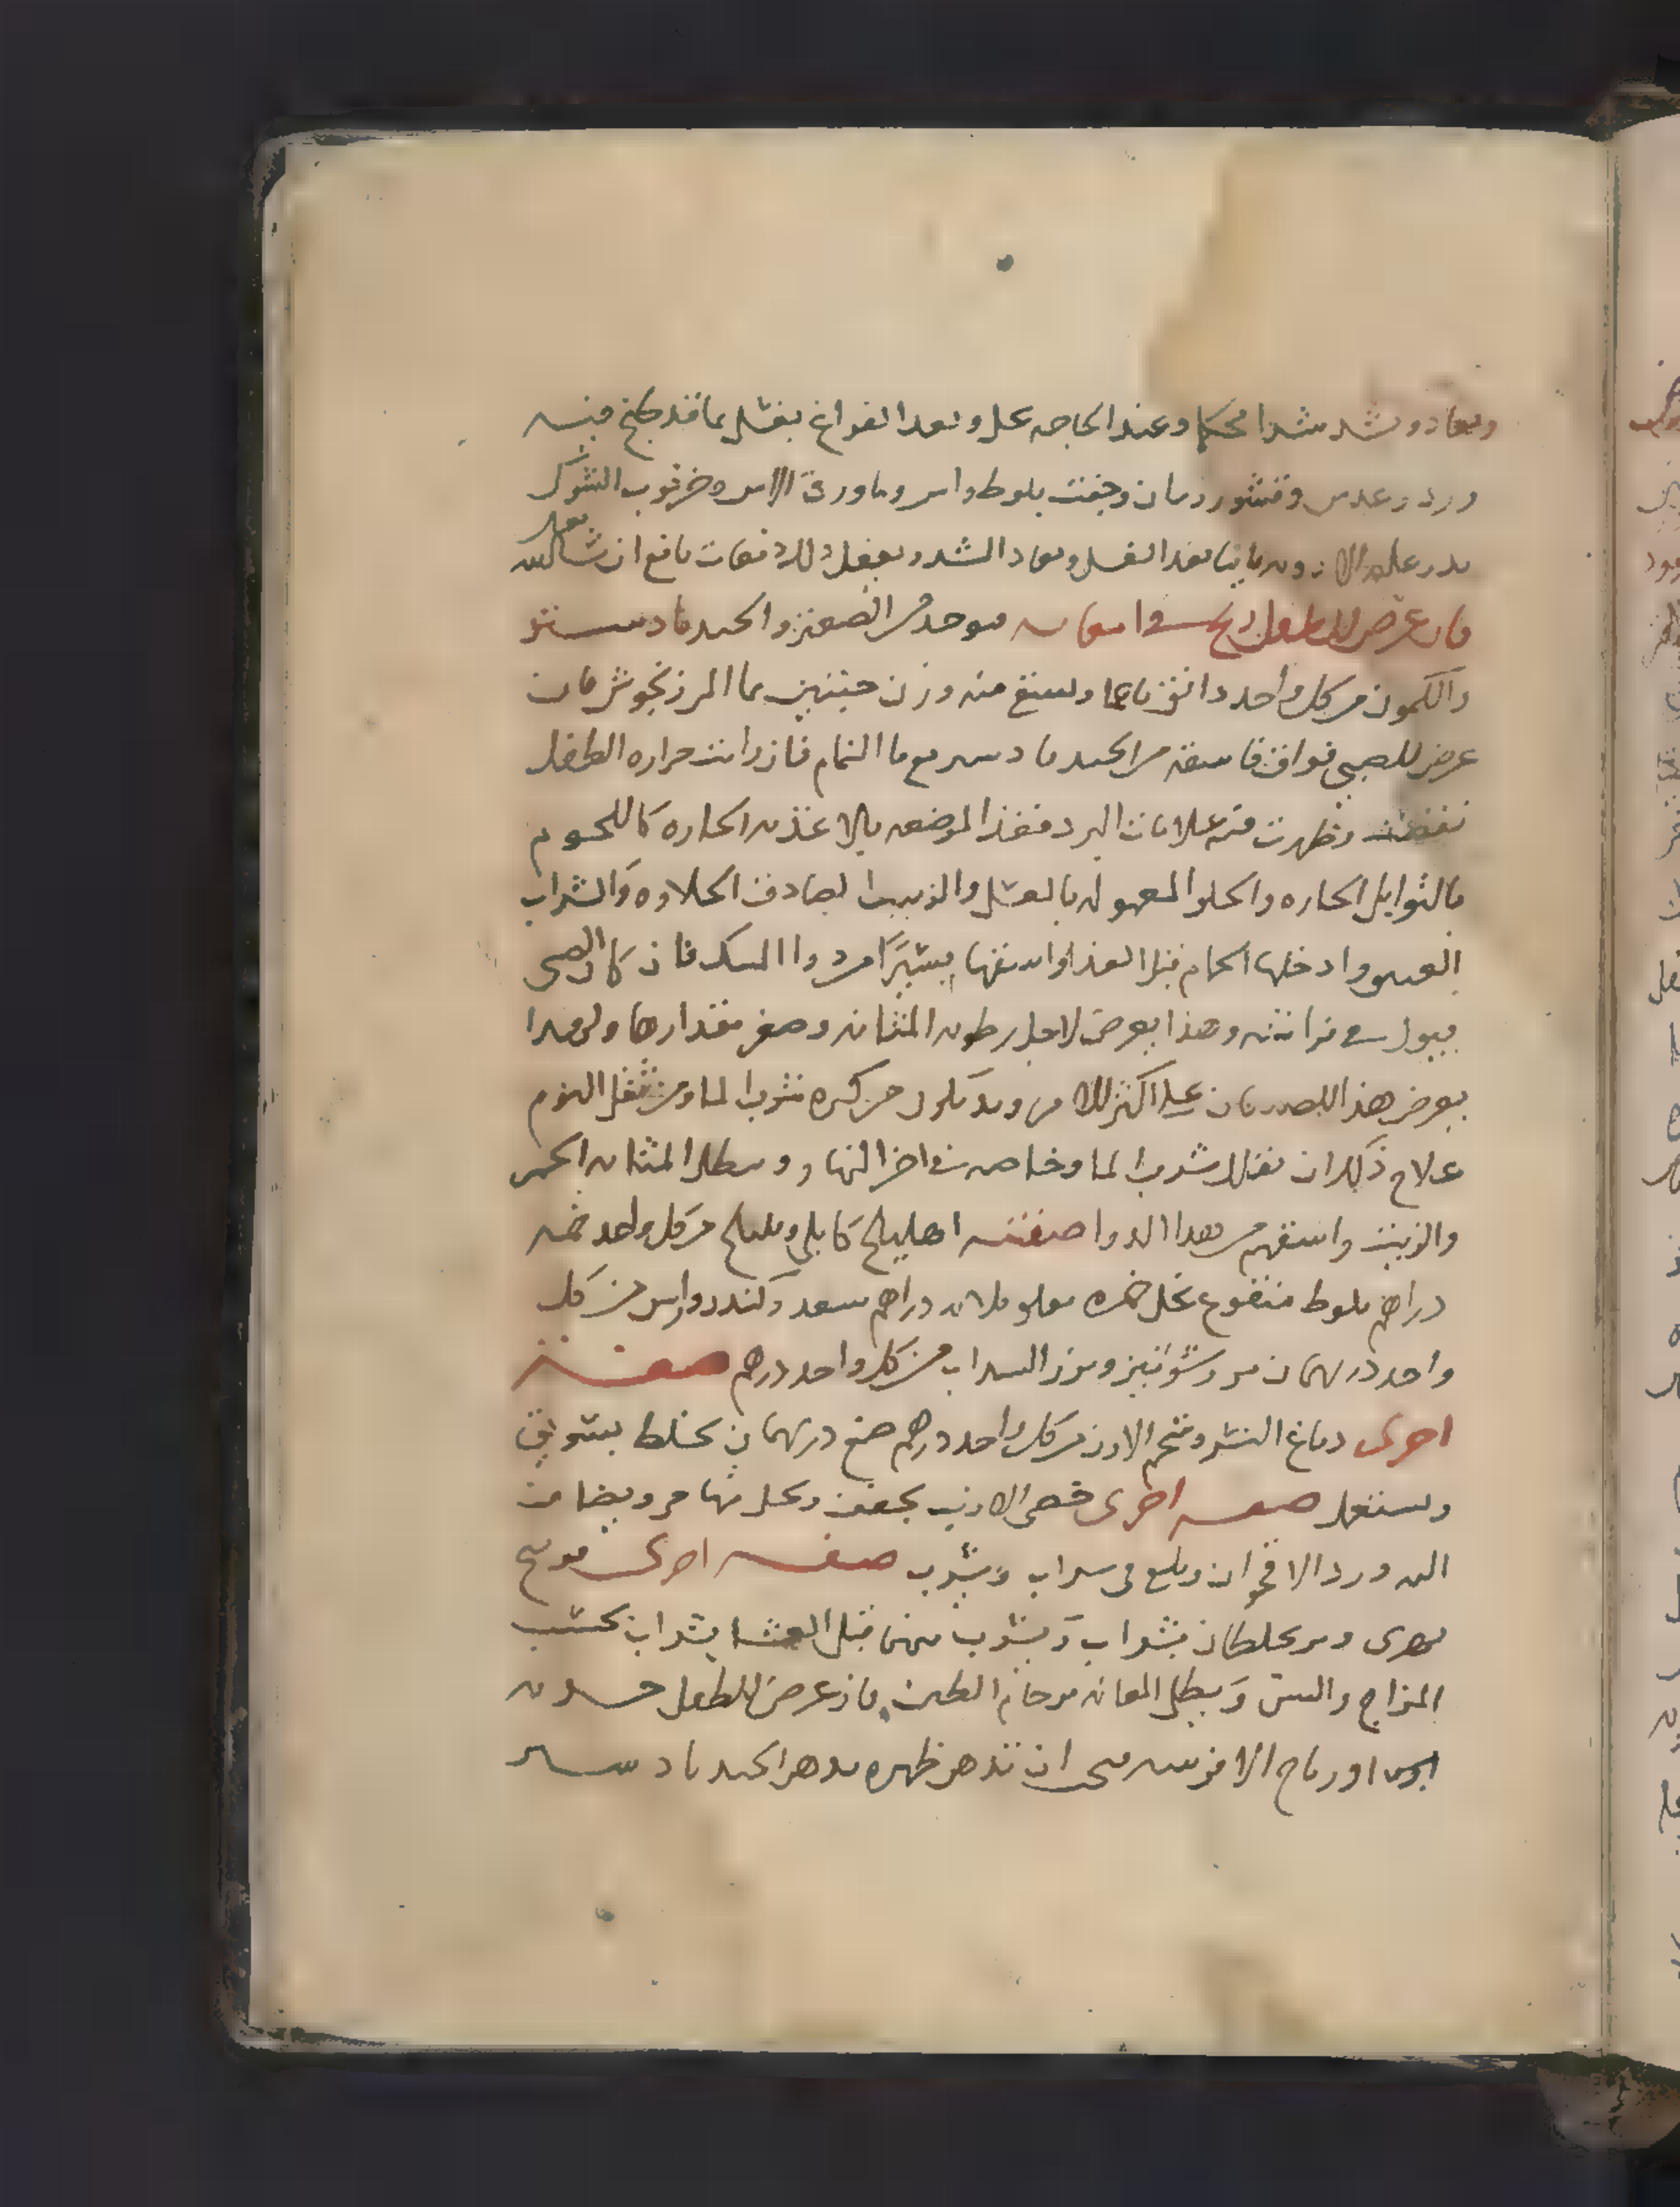 ويعاد ويشد شدا محكما وعند الحاجه يحل وبعد الفراغ يغسل بماقد طبخ فيه
ورد وعدس وقشور رمان وجفت بلوط واس وماورق الاس وخرنوب الشوك
يدر عليه الادويه ثانيا بعد الغسل ويعاد الشد ويفعل ذلك دفعات نافع ان شا الله تعالى
فان عرض للطفل ريح في امعايه فيوخذ من الصعتر والجندبادستر
والكمون من كل واحد دانق ناعما ويسقى منه وزن حبتين بما المرزنجوش فان
عرض للصبي فواق فاسقه من الجندبادستر مع ما النمام فان رايت حراره الطفل
نقصت وظهرت فيه علامات البرد فغذ المرضعه بالاغذيه الحاره كاللحوم
بالتوابل الحاره والحلو المعموله بالعسل والزبيب الصادق الحلاوه والشراب
العتيق وادخلها الحمام قبل الغذا واسقها يسيرا من دوا المسك فان كان الصبي
يبول في فراشه وهذا يعرض لاجل رطوبه المثانه وصغر مقدارها ولهذا
يعرض هذا للصبيان على اكثر الامر وقد يكون من كثره شرب الما ومن ثقل النوم
علاج ذلك ان تقلل شرب الما وخاصه في اخر النهار وينطل المثانه الخمر
والزيت واسقهم من هذا الدوا صفته اهليلج كابلي وبليلج من كل واحد خمسه
دراهم بلوط منقوع بخل خمر مقلو ثلاثه دراهم سعد وكندر وراس من كل
واحد درهمان مر وشونيز وبزر السداب من كل واحد درهم صفه
اخرى دماغ النسر وشحم الاوز من كل واحد درهم صمغ درهمان يخلط بسويق
ويستعمل صفه اخرى خصى الارنب يجفف ويحل منها خمر ويضاف
اليه ورد الاقحوان ويلقى في شراب ويشرب صفه اخرى فوتنج
نهري ومر يخلطان بشراب ويشرب منهما قبل العشا بشراب بحسب
المزاج والسن ويطلى العانه من خاتم الطين فان عرض للطفل حدبه
او رياح الافرسه فينبغي ان تدهن ظهره بدهن الجندبادستر